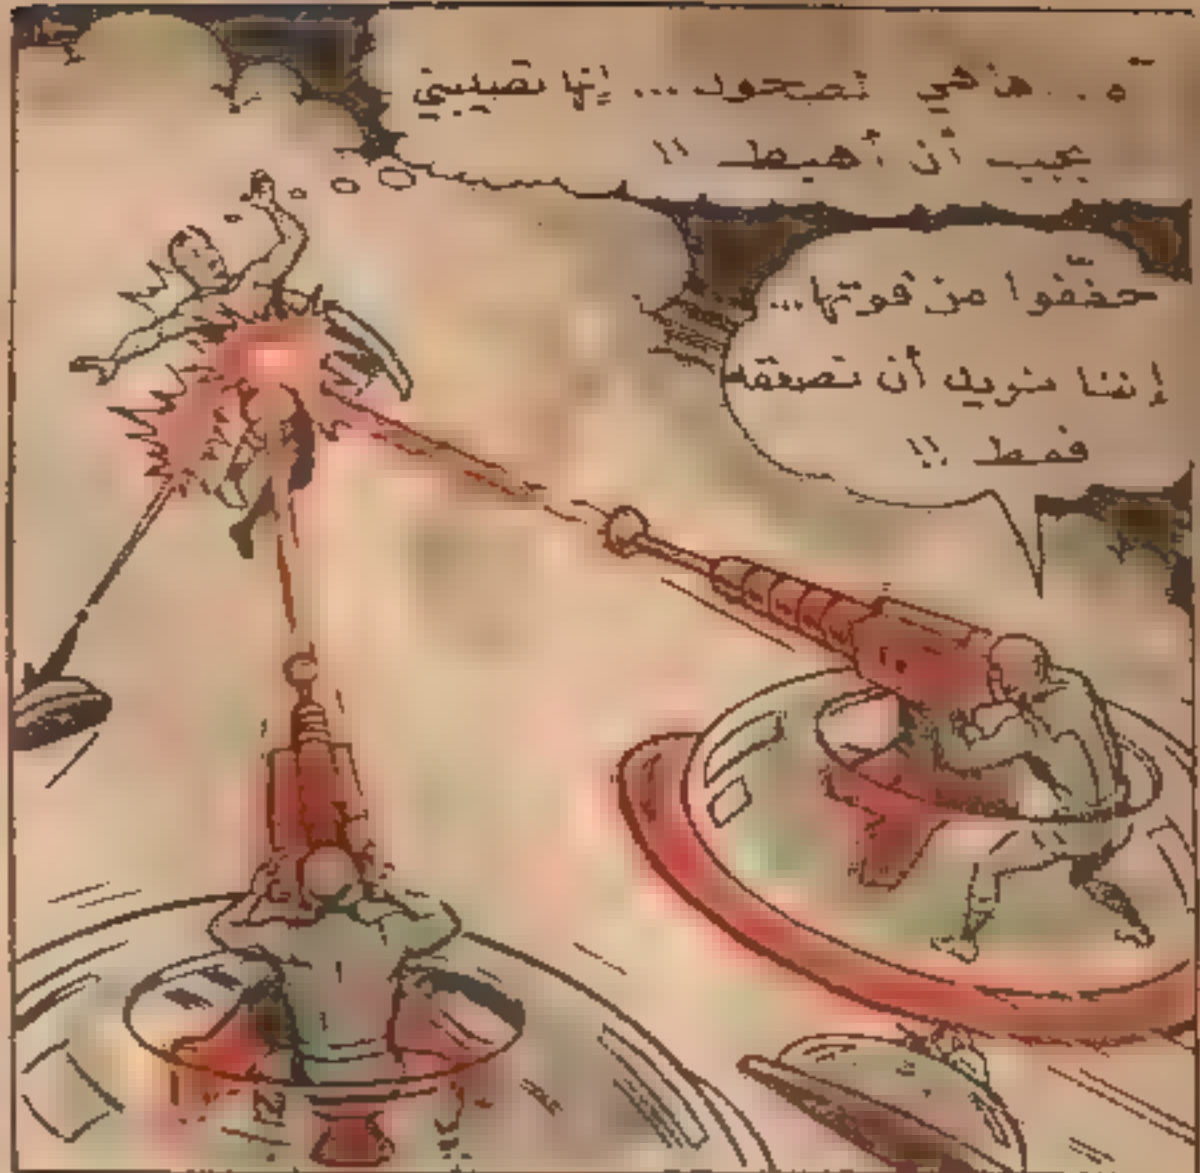 آه... ها هي تصحو... إنها تصيبني
يجب أن أهبط !!
خففوا من قوتها...
إننا نريد أن نصعقه
فقط !!